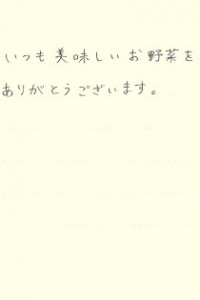 いつも美味しいお野菜を
ありがとうございます。